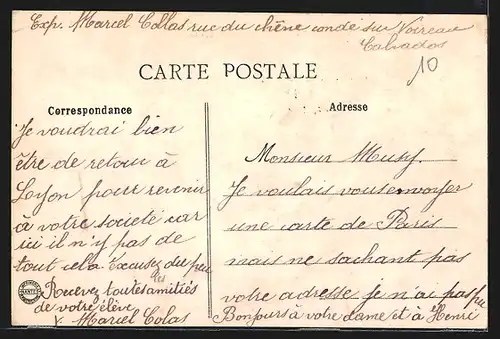 Exp. Marcel Collas rue du chêne condé sur Noireau
Calvados
10
CARTE POSTALE
Correspondance
Adresse
Je voudrai bien
être de retour à
Lyon pour revenir
à votre societé car
ici il n'y pas de
tout cela Excusez du peu
Recevez toutes les amitiés
de votre élève
Marcel Colas
Monsieur Musy.
Je voulais vous envoyer
une carte de Paris
mais ne sachant pas
votre adresse je n'ai pas pu
Bonjours à votre dame et à Henri